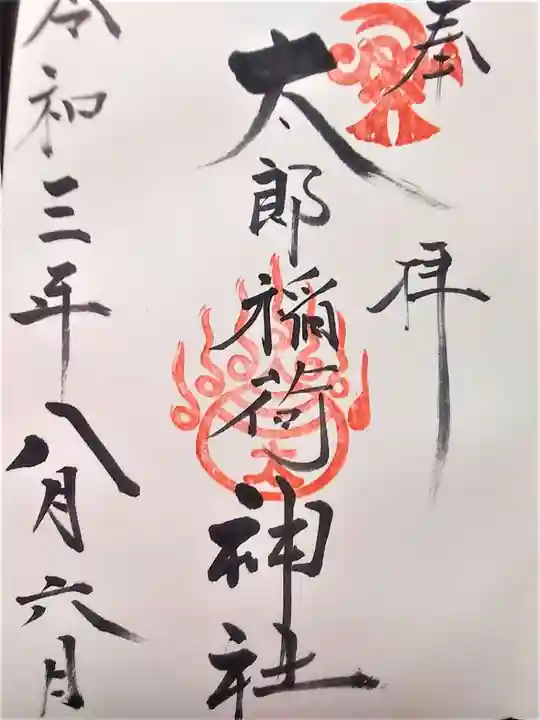 奉拝
太郎稲荷神社
令和三年八月六月